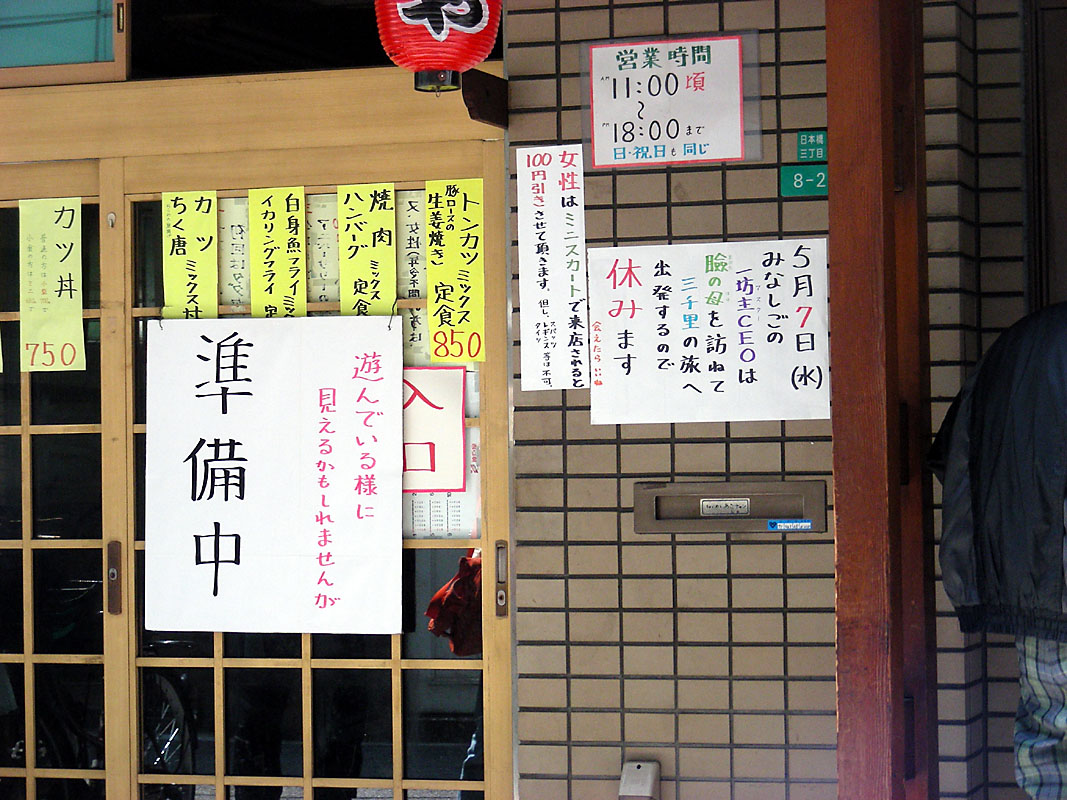 営業時間
AM 11:00頃
〜
PM 18:00まで
日・祝日も同じ
日本橋
三丁目
8-2
女性はミニスカートで来店されると
100円引きさせて頂きます。但し、スパッツ レギンス タイツ 等は不可。
5月7日(水)
みなしごの
一坊主CEOは
マスター
瞼の母を訪ねて
三千里の旅へ
出発するので
休みます
会えたら!!
トンカツミックス
豚ロースの
生姜焼き 定食
850
焼肉 ミックス
ハンバーグ 定食
白身魚フライ ミ
イカリングフライ 定
カツ
ちく唐 ミックス丼
カツ丼
750
入口
遊んでいる様に
見えるかもしれませんが
準備中